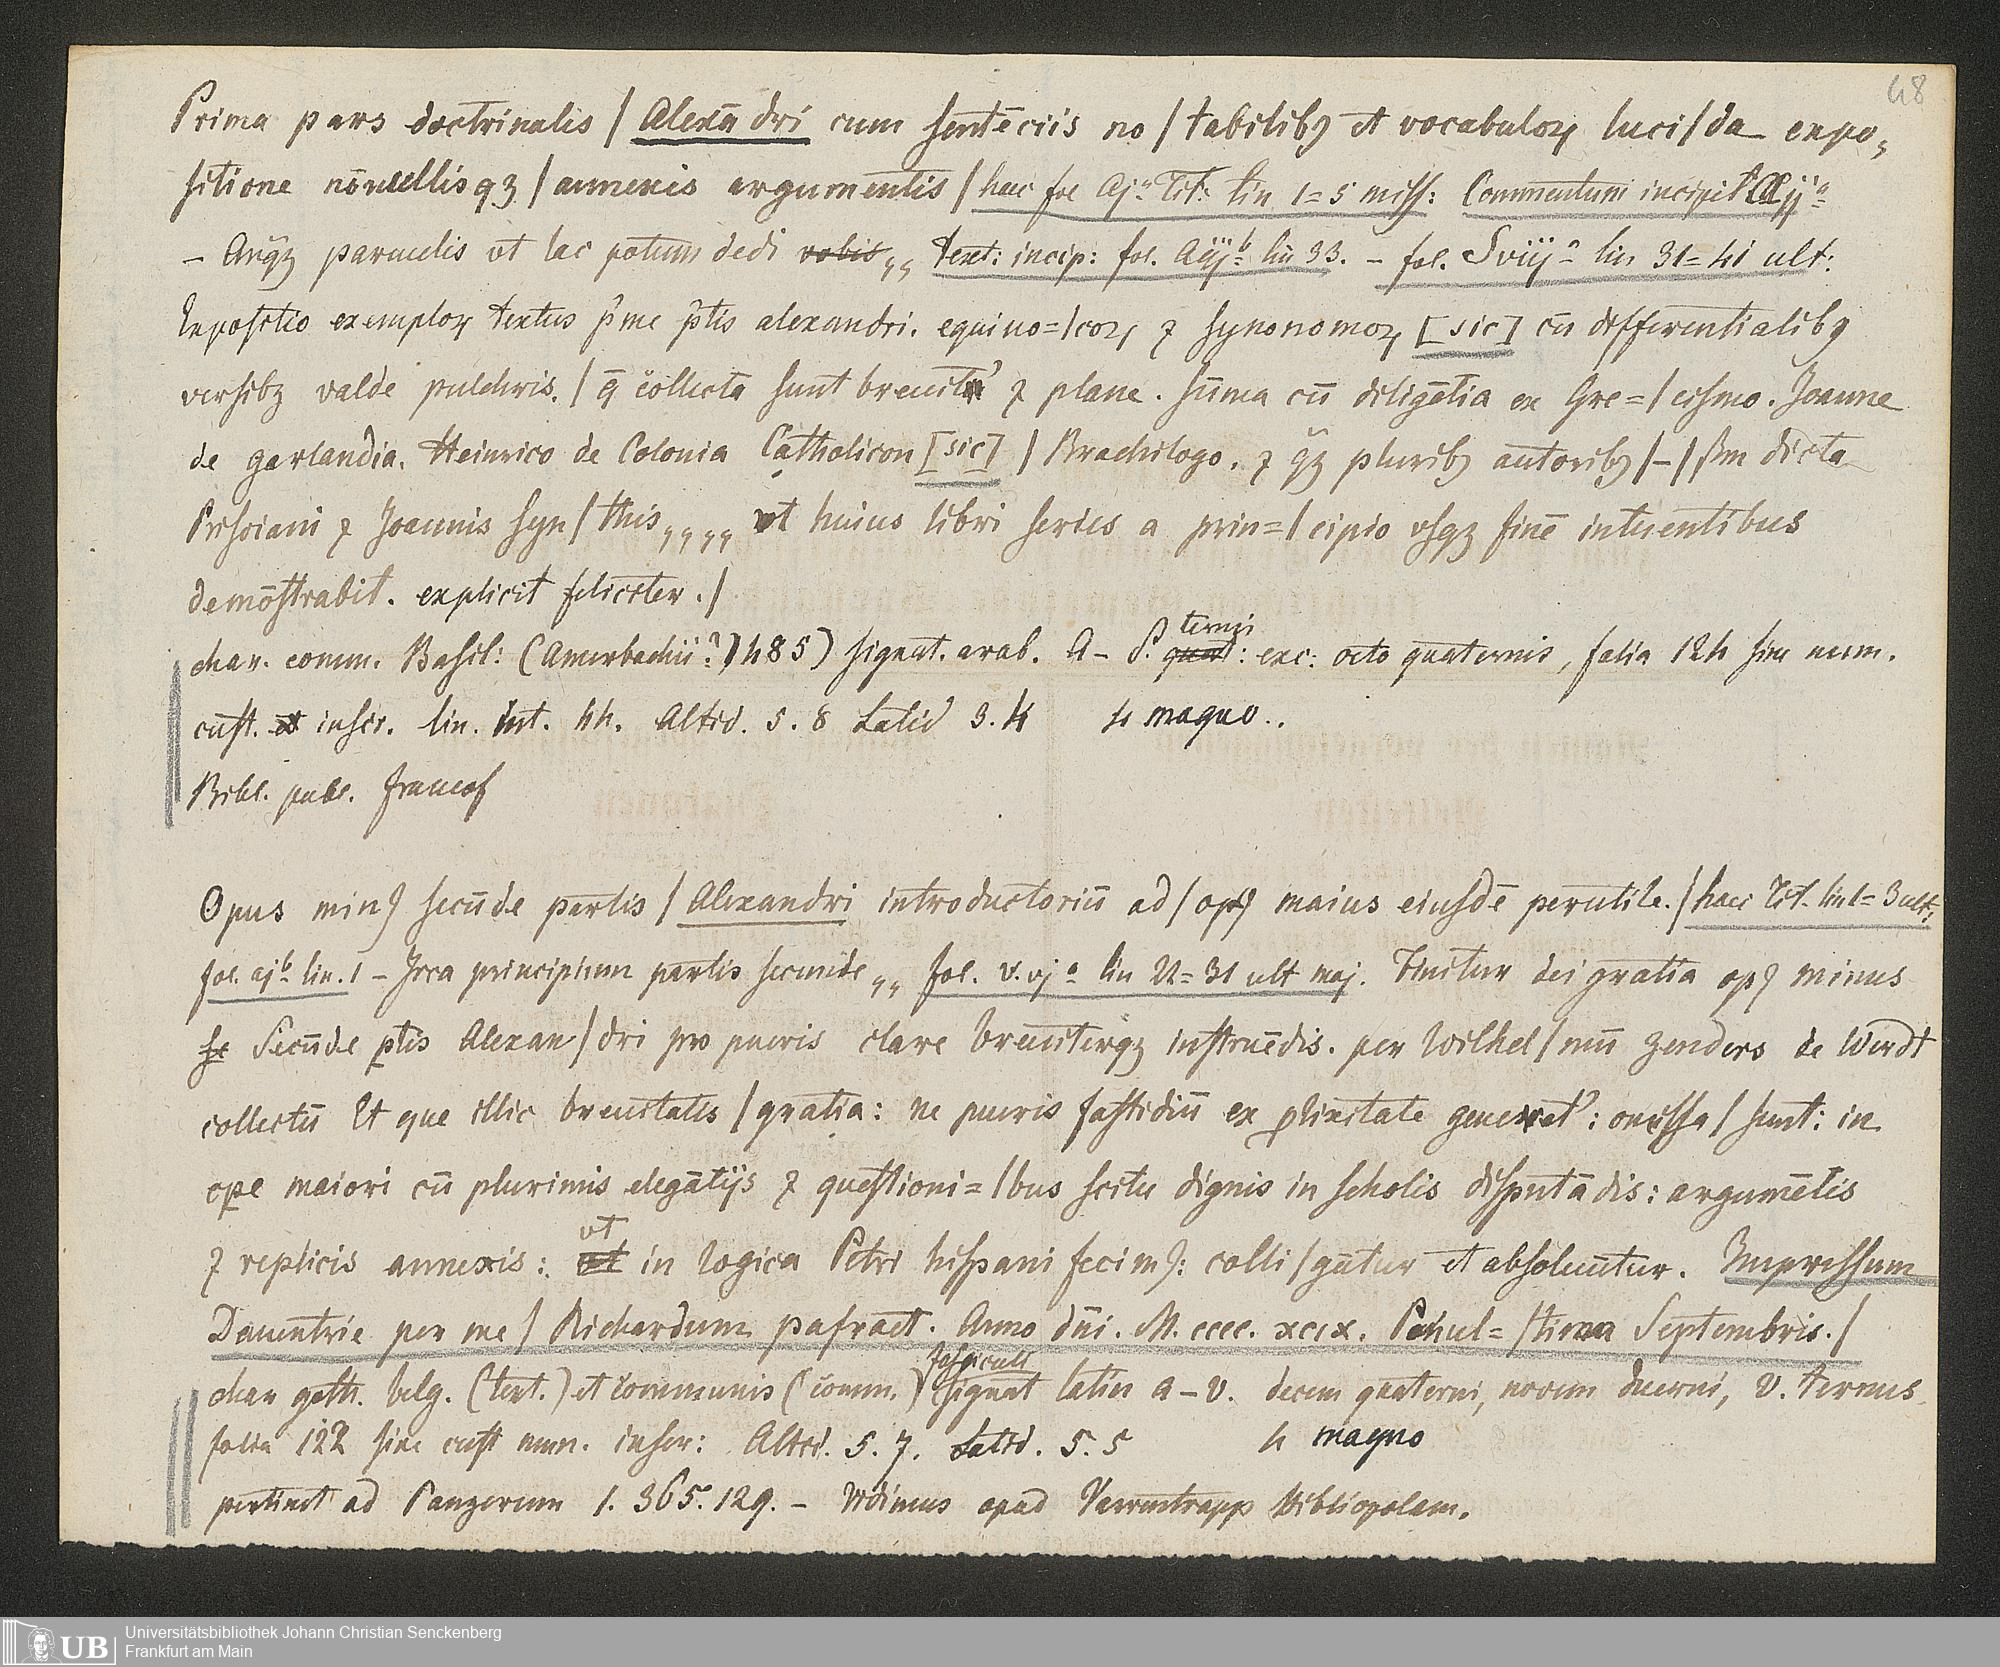 48
Prima pars doctrinalis / Alexādri cum sentēciis no / tabilibꝫ et vocabuloꝝ luci / da expo⸗
sitione nōnullisqꝫ / annexis argumentis / haec fol Aj.ᵃ Tit: lin 1=5 miss: Commentum incipit Aijᵃ
– parvulis vt lac potum dedi vobis,, text: incip: fol. Aiijᵇ lin 33. – fol. Sviijᵃ lin 31=41 ult:
Expositio exemploꝝ textus p̄me p̄tis alexandri. equiuo=/coꝝ ⁊ synonomoꝝ [sic] cū differentialibꝫ
versibꝫ valde pulchris. / q̄ collecta sunt breuit' ⁊ plane. sūma cū diligētia ex Gre=/cismo. Joanne
de garlandia. Heinrico de Colonia Catholicon [sic] / Brachilogo. ⁊ pluribꝫ autoribꝫ / – / s̄m dicta
Prisciani ⁊ Joannis syn / this,,,, vt huius libri series a prin=/cipio vsqꝫ finē intuentibus
demōstrabit. explicit feliciter. /
char. comm. Basil: (Amerbachii? 1485) signat. arab. A – S. quat: terni exc: octo quaternis, folia 124 sine num.
cust. et inscr. lin. int. 44. Altid. 5. 8 Latid 3. 4 4 magno..
Bibl. publ. Francof
Opus minꝰ secūde partis / Alexandri introductoriū ad / opꝰ maius eiusdē perutile. / haec Tit. lin 1=3 ult:
fol. ajᵇ lin. 1 – Circa principium partis secunde,, fol. v.vjᵃ lin 22=31 ult maj. Finitur dei gratia opꝰ minus
se Secūde ptis Alexan / dri pro pueris clare breuiterqꝫ instruēdis. per Wilhel / mū zenders de Werdt
collectū Et que illic breuitatis / gratia: ne pueris fastidiū ex plixitate generet': omissa / sunt: in
ope maiori cū plurimis elegātijs ⁊ questioni=/bus scitu dignis in scholis disputādis: argumētis
⁊ replicis annexis: vt in logica Petri hispani fecimꝰ: colli / gūtur et absoluūtur. Impressum
Dauentrie per me / Richardum pafraet. Anno dn̄i. M. cccc. xcix. Penul=/tima Septembris. /
char goth. belg. (text.) et communis (comm.) fasciculi signat latin a – v. decem quaterni, novem duerni, v. ternus
folia 122 sine cust num. inscr: Altid. 5. 7. Latid. 5. 5 4 magno
pertinet ad Panzerum 1. 365. 129. – Vidimus apud Varrentrapp Bibliopolam.
UB Universitätsbibliothek Johann Christian Senckenberg
Frankfurt am Main